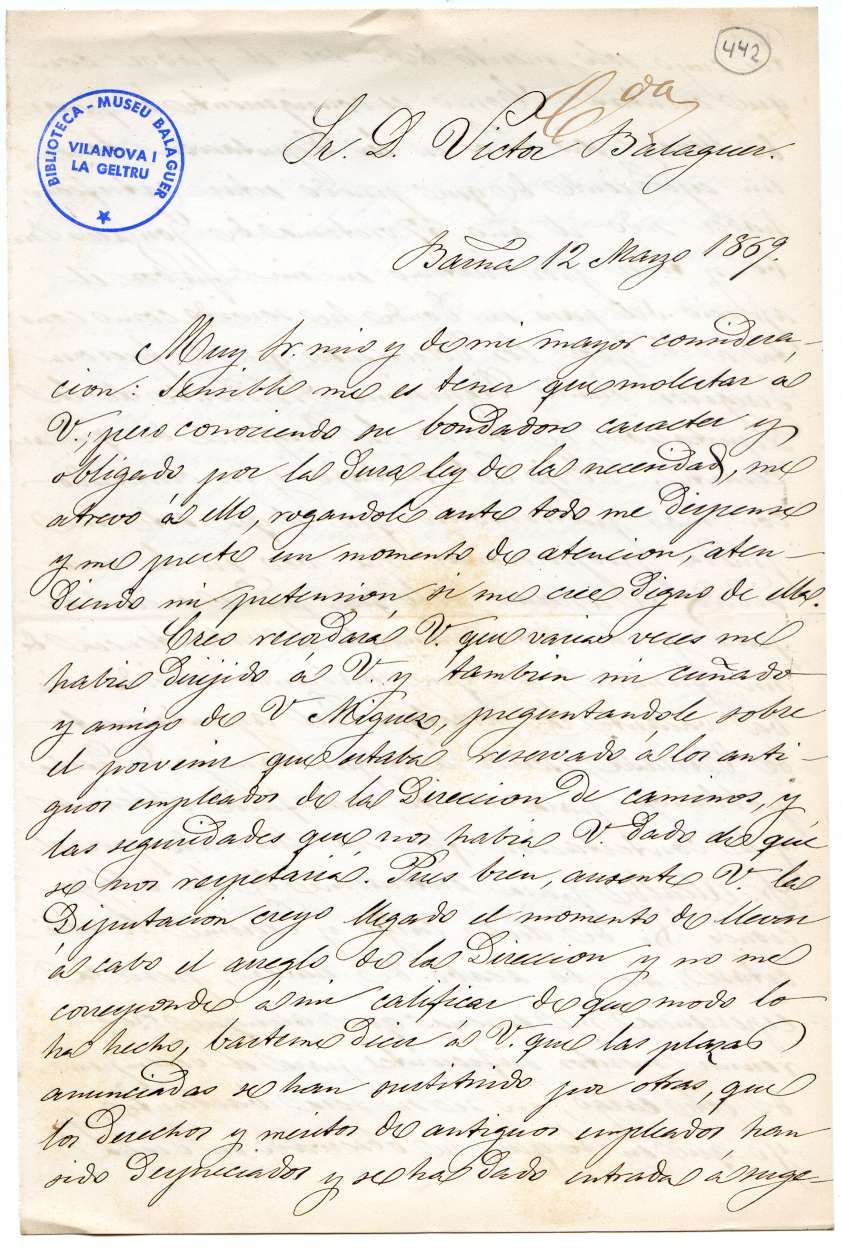 442
Cda
BIBLIOTECA - MUSEU BALAGUER
VILANOVA I
LA GELTRU
Sr. D. Victor Balaguer.
Barña 12 Marzo 1869.
Muy Sr. mio y de mi mayor considera-
cion: Sensible me es tener que molestar á
V., pero conociendo su bondadoso caracter y
obligado por la dura ley de la necesidad, me
atrevo á ello, rogandole ante todo me dispense
y me preste un momento de atencion, aten-
diendo mi pretension si me cree digno de ella.
Creo recordará V. que varias veces me
habia dirijido á V. y tambien mi cuñado
y amigo de V Miguez, preguntandole sobre
el porvenir que estaba reservado á los anti-
guos empleados de la Direccion de caminos, y
las seguridades que nos habia V. dado de qué
se nos respetariá. Pues bien, ausente V. la
Diputacion creyo llegado el momento de llevar
á cabo el arreglo de la Direccion y no me
corresponde á mi calificar de que modo lo
ha hecho, basteme decir á V. que las plazas
anunciadas se han sustituido por otras, que
los derechos y meritos de antiguos empleados han
sido despreciados y se ha dado entrada á suge-